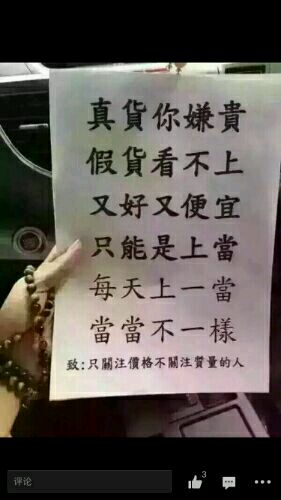 真貨你嫌貴
假貨看不上
又好又便宜
只能是上當
每天上一當
當當不一樣
致:只關注價格不關注質量的人
评论
3